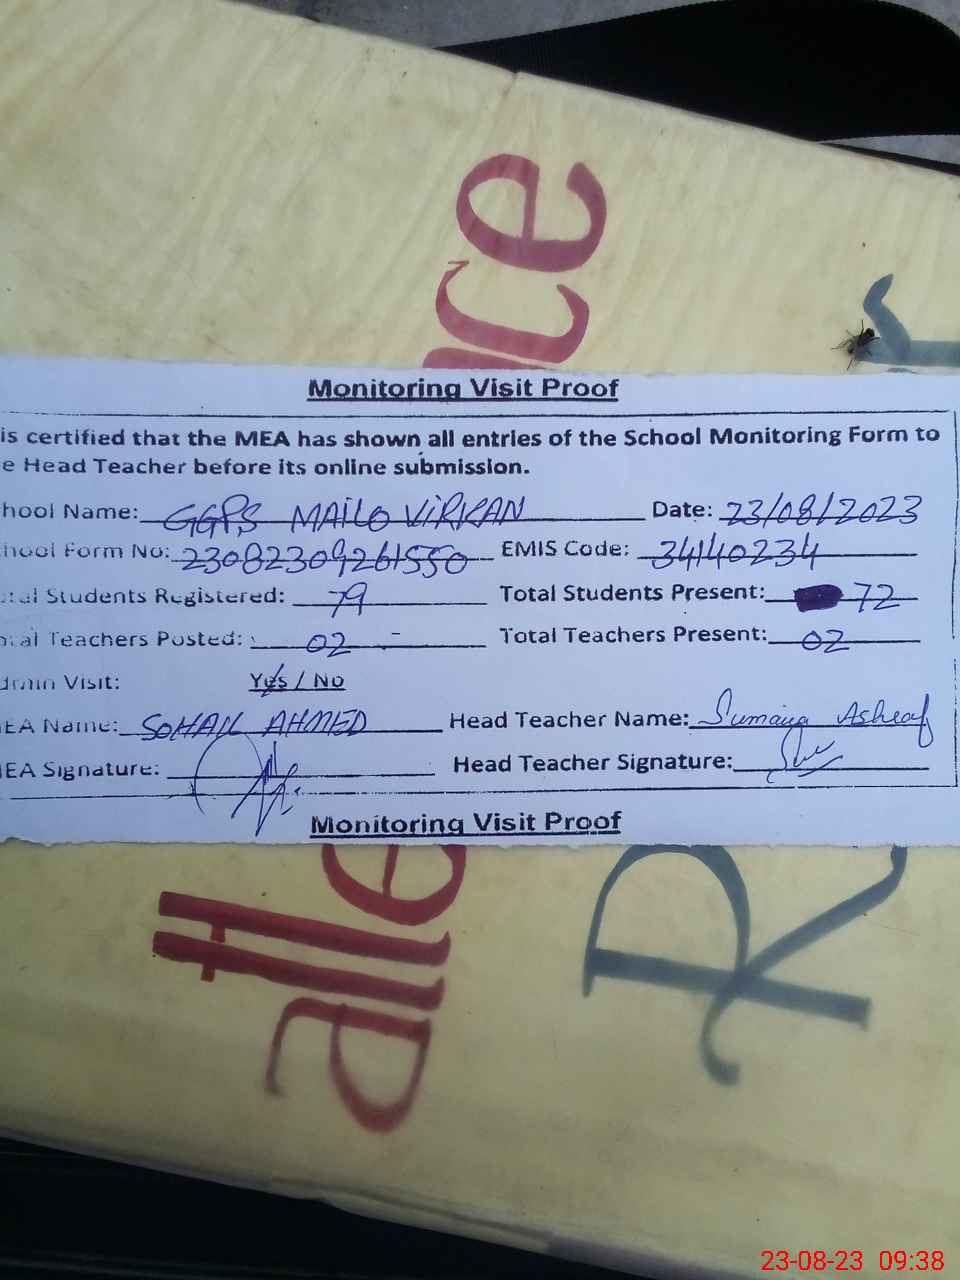 Monitoring Visit Proof
is certified that the MEA has shown all entries of the School Monitoring Form to
e Head Teacher before its online submission.
hool Name: GGPS MAILO VIRKAN Date: 23/08/2023
hool Form No: 23082309261550 EMIS Code: 34140234
tal Students Registered: 79 Total Students Present: 72
tal Teachers Posted: 02 - Total Teachers Present: 02
dmin Visit: Yes / No
EA Name: SOHAIL AHMED Head Teacher Name: Sumaira Ashraf
EA Signature: Head Teacher Signature:
Monitoring Visit Proof
atte
nce
R
23-08-23 09:38